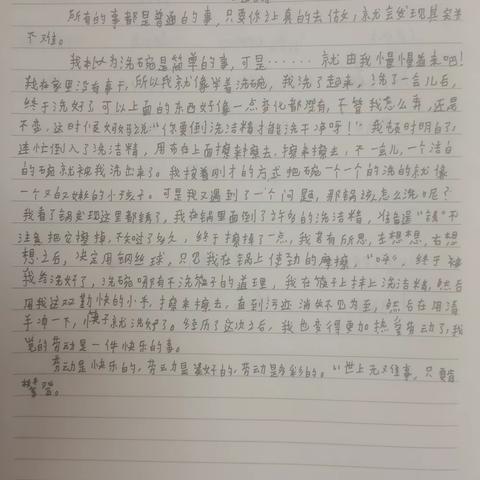 所有的事都是普通的事，只要你认真的去做，就会发现其实并
不难。
我本以为洗碗是简单的事，可是……就由我慢慢道来吧！
我在家里没有事干，所以我就像学着洗碗，我洗了起来，洗了一会儿后，
终于洗好了可以上面的东西好像一点变化都没有，不管我怎么弄，还是
不变，这时候奶奶说："你要倒洗洁精才能洗干净呀！"我顿时明白了，
连忙倒入了洗洁精，用布在上面擦来擦去，擦来擦去，不一会儿，一个洁白
的碗就被我洗出来了。我按着刚才的方式把碗一个一个的洗的就像
一个又白又嫩的小孩子。可是我又遇到了一个问题，那锅该怎么洗呢？
我看了锅发现这里都锈了，我在锅里面倒了许多的洗洁精，准备逼"锈"不
注意把它擦掉，不知过了多久，终于擦掉了一点，我若有所思，左想想，右想
想之后，决定用钢丝球，只见我在锅上使劲的摩擦，"呼"，终于被
我给洗好了，洗碗哪有不洗筷子的道理，我在筷子上抹上洗洁精，然后
用我这双勤快的小手，擦来擦去，直到污迹消失不见为至，然后在用清
手冲一下，筷子就洗好了。经历了这次之后，我也变得更加热爱劳动了，我
觉的劳动是一件快乐的事。
劳动是快乐的，劳动是美好的，劳动是多彩的。"世上无难事，只要肯
攀登。